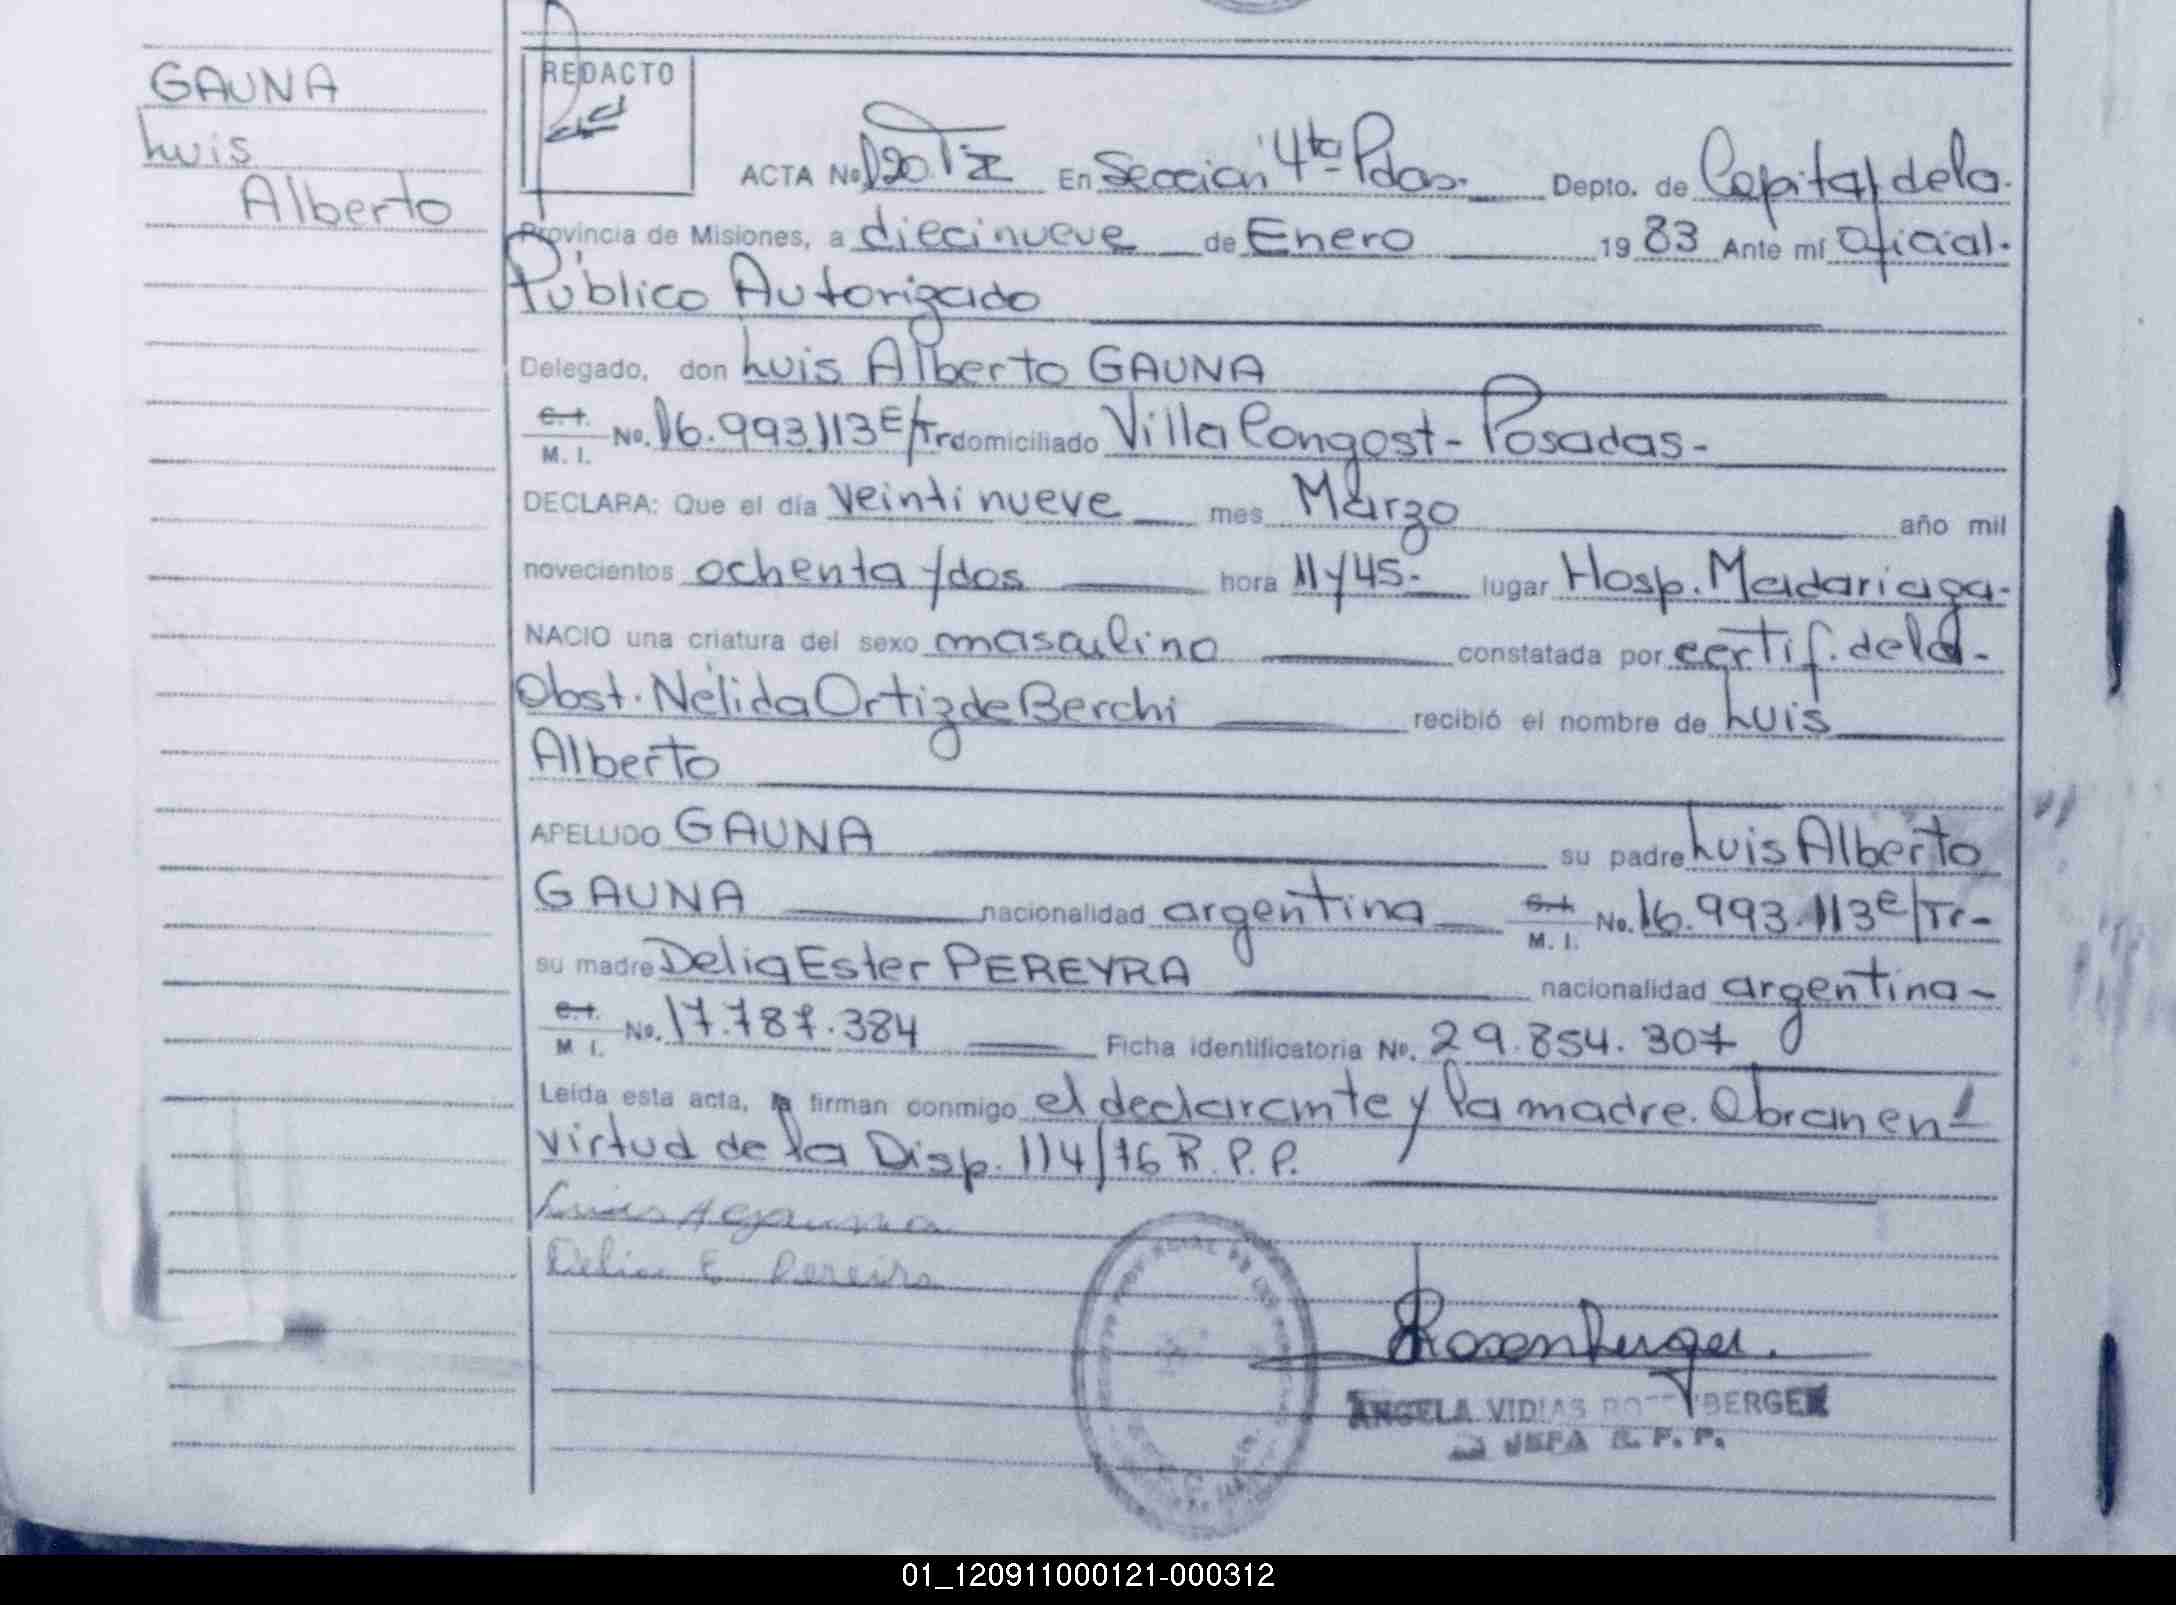 GAUNA
Luis
Alberto
REDACTO
ACTA No 120 T I En Sección 4ta Pdas. Depto. de Capital de la
Provincia de Misiones, a diecinueve de Enero 19 83 Ante mí Oficial
Público Autorizado
Delegado, don Luis Alberto GAUNA
C.I. M. I. No. 16.993.113 E/Tr domiciliado Villa Longost - Posadas -
DECLARA: Que el día veintinueve mes Marzo año mil
novecientos ochenta y dos hora 11 y 45 - lugar Hosp. Madariaga -
NACIO una criatura del sexo masculino constatada por certif. de la -
Obst. Nélida Ortiz de Berchi recibió el nombre de Luis
Alberto
APELLIDO GAUNA su padre Luis Alberto
GAUNA nacionalidad argentina C.I. M. I. No. 16.993.113 e/Tr -
su madre Delia Ester PEREYRA nacionalidad argentina -
C.I. M I. No. 17.787.384 Ficha identificatoria No. 29.854.307
Leída esta acta, la firman conmigo el declarante y la madre. Obran en
virtud de la Disp. 114/76 R.P.P.
Luis A Gauna
Delia E Pereira
Rosenberger.
ANGELA VIDIAS BERGER
JEFA R. P. P.
01_120911000121-000312